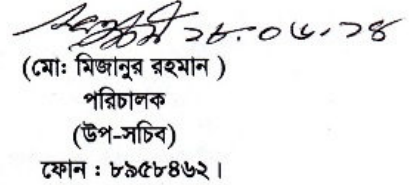 ২৮.০৫.১৪
(মোঃ মিজানুর রহমান )
পরিচালক
(উপ-সচিব)
ফোন : ৮৯৫৮৪৬২।